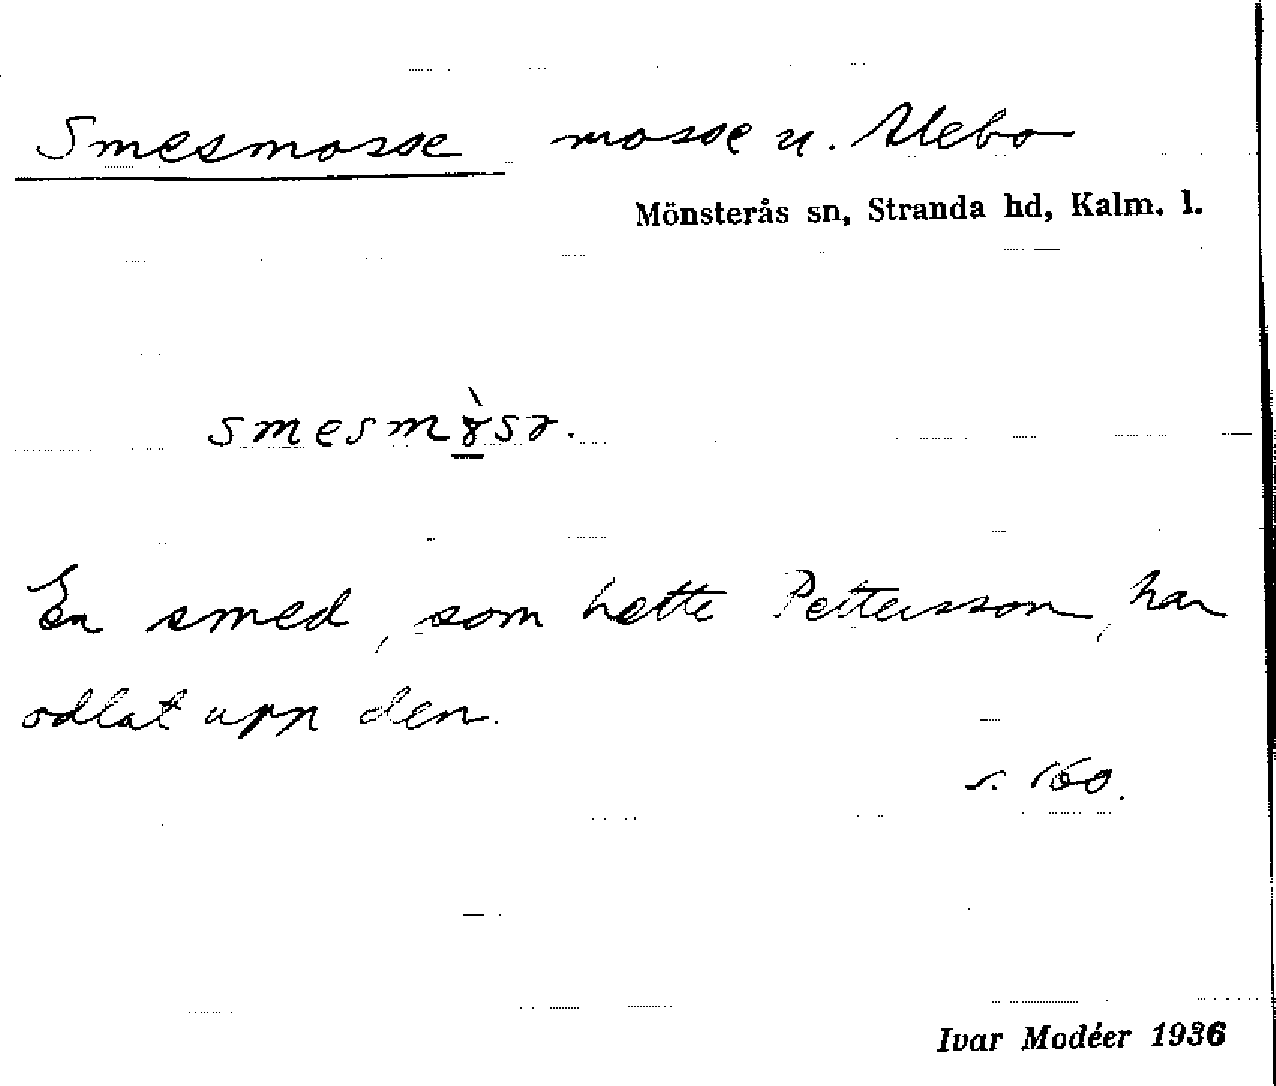 Smesmosse mosse u. Alebo
Mönsterås sn, Stranda hd, Kalm. l.
En smed, som hette Pettersson, har
odlat upp den.
s. 160.
Ivar Modéer 1936